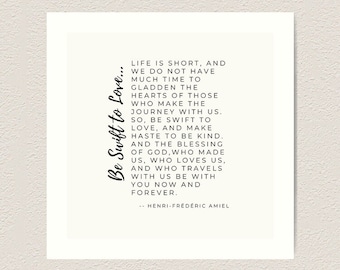 Be Swift to Love...
LIFE IS SHORT, AND
WE DO NOT HAVE
MUCH TIME TO
GLADDEN THE
HEARTS OF THOSE
WHO MAKE THE
JOURNEY WITH US.
SO, BE SWIFT TO
LOVE, AND MAKE
HASTE TO BE KIND.
AND THE BLESSING
OF GOD,WHO MADE
US, WHO LOVES US,
AND WHO TRAVELS
WITH US BE WITH
YOU NOW AND
FOREVER.
-- HENRI-FRÉDÉRIC AMIEL